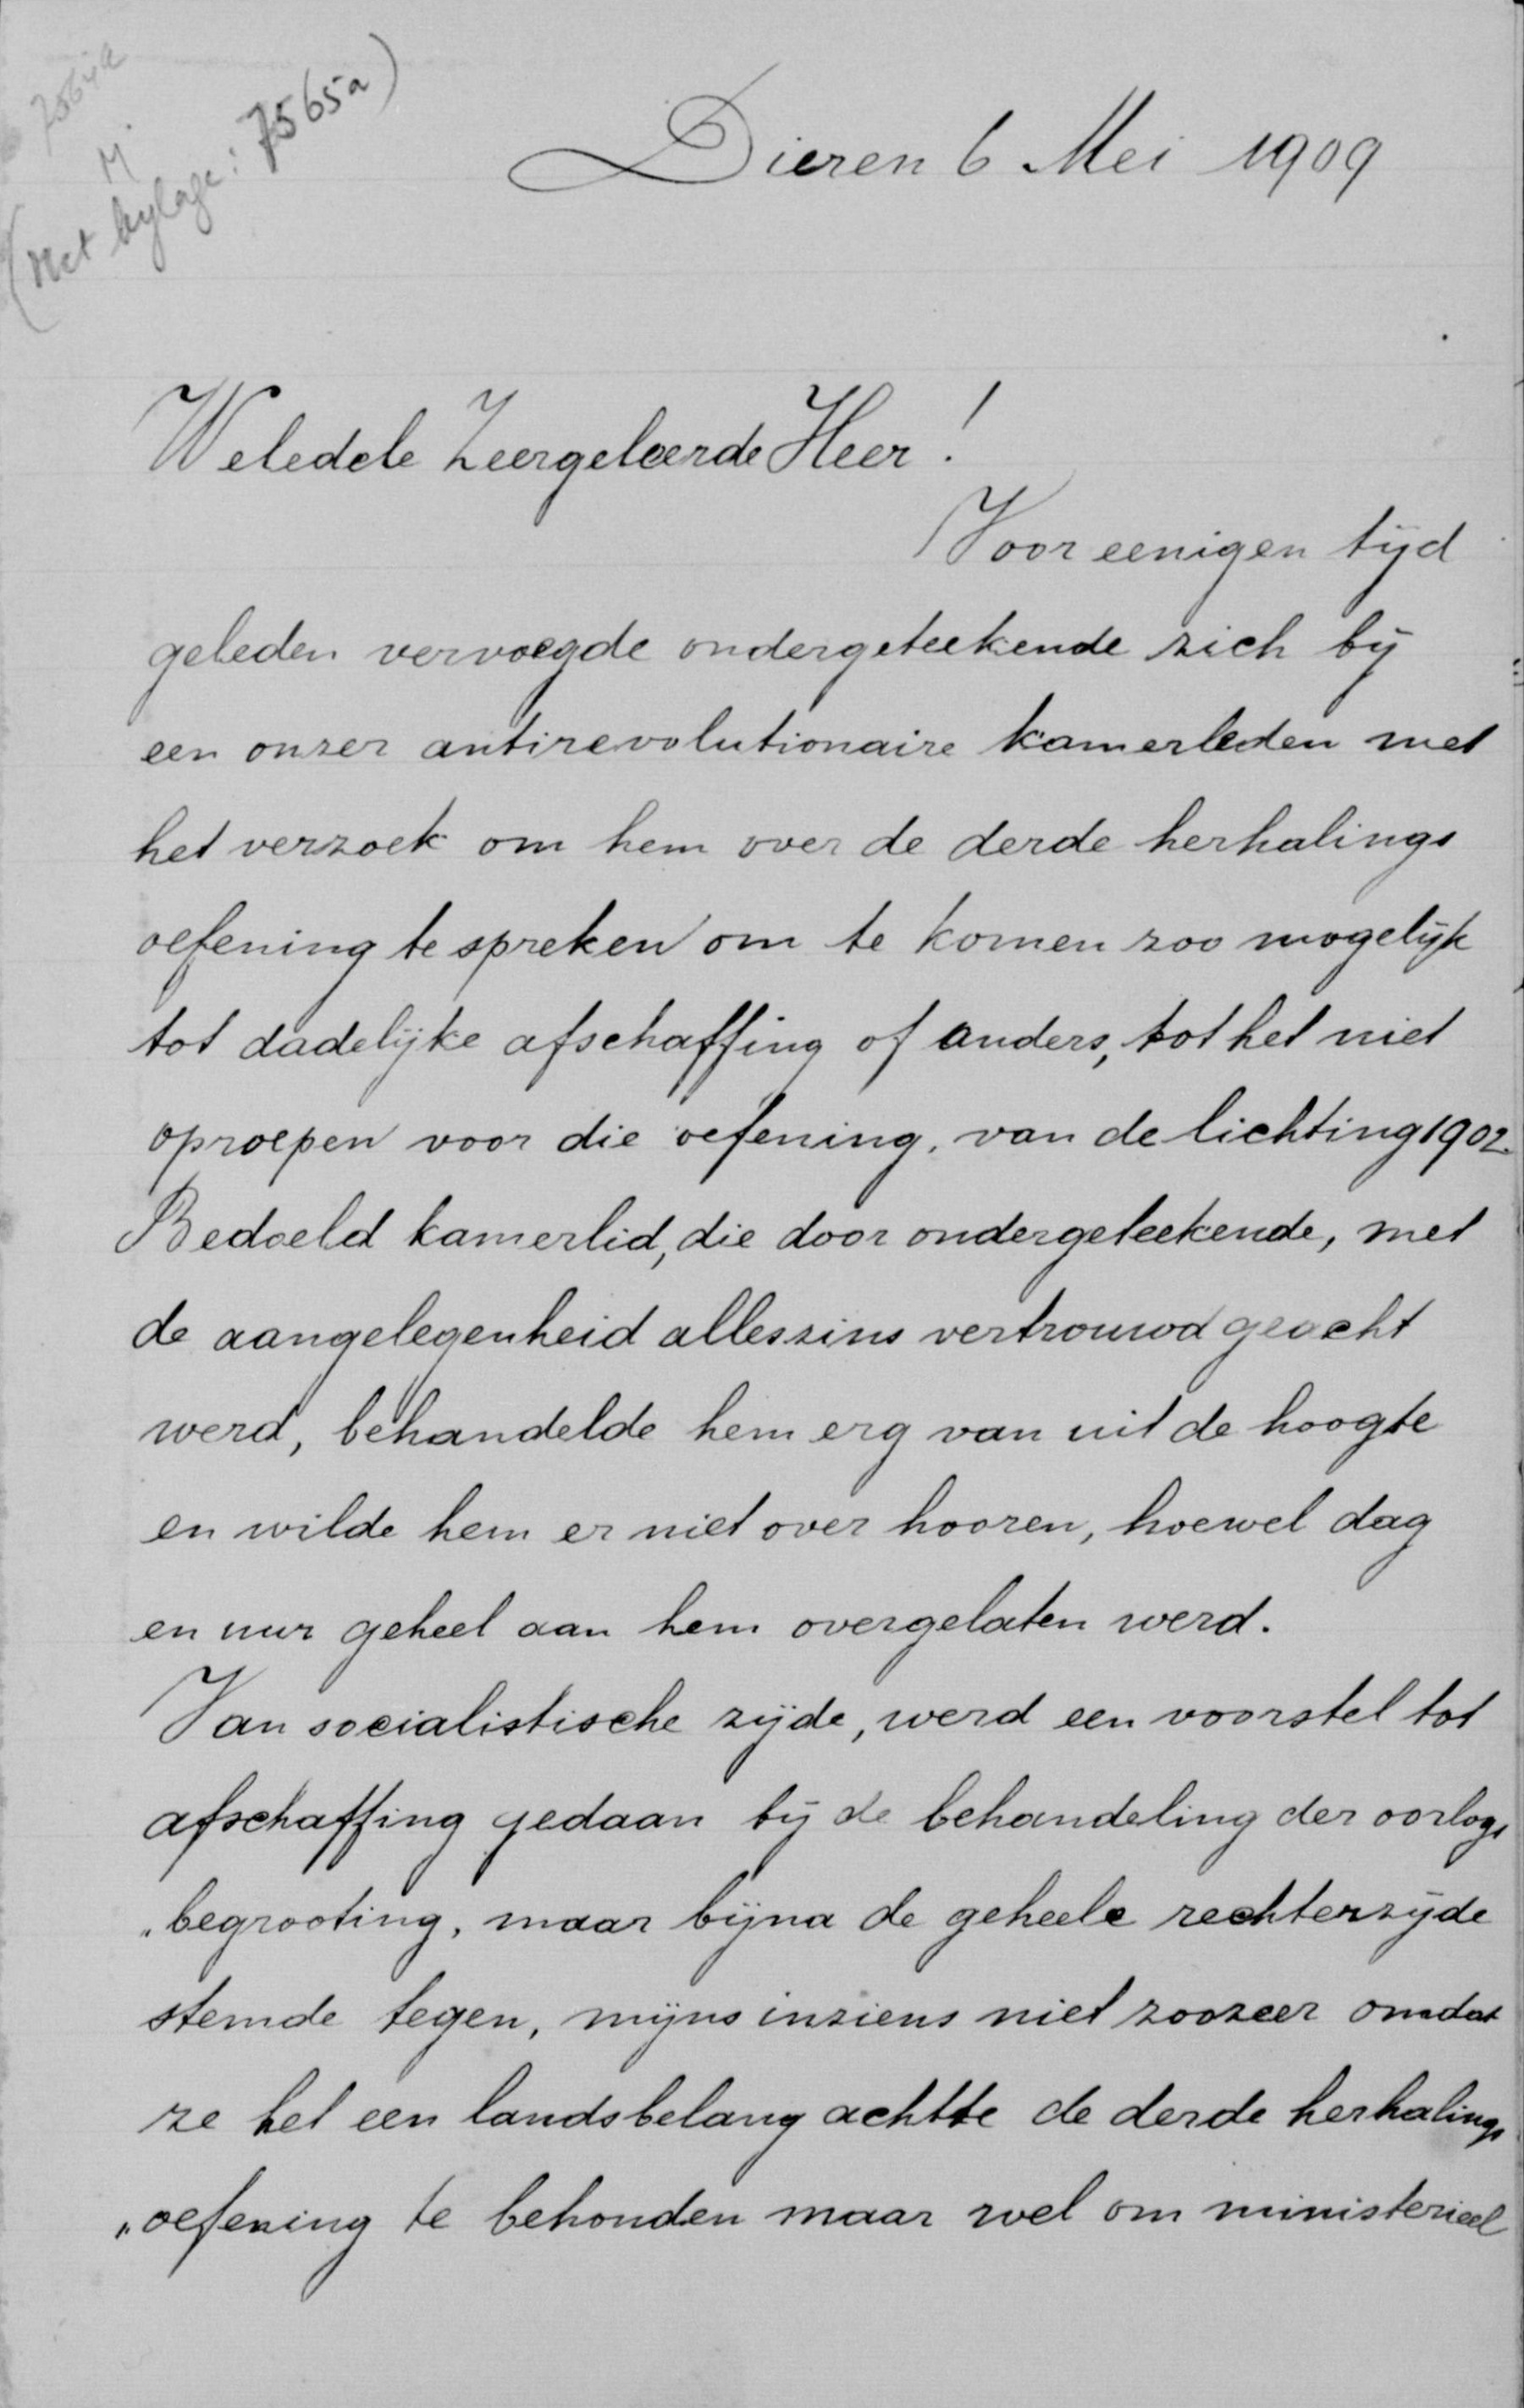 7564a
M.
(Met bylage: 7565a)
Dieren 6 Mei 1909
Weledele Zeergeleerde Heer!
Voor eenigen tijd
geleden vervoegde ondergeteekende zich bij
een onzer antirevolutionaire kamerleden met
het verzoek om hem over de derde herhalings
oefening te spreken om te komen zoo mogelijk
tot dadelijke afschaffing of anders, tot het niet
oproepen voor die oefening, van de lichting 1902.
Bedoeld kamerlid, die door ondergeteekende, met
de aangelegenheid alleszins vertrouwd geacht
werd, behandelde hem erg van uit de hoogte
en wilde hem er niet over hooren, hoewel dag
en uur geheel aan hem overgelaten werd.
Van socialistische zijde, werd een voorstel tot
afschaffing gedaan bij de behandeling der oorlogs
„begrooting, maar bijna de geheele rechterzijde
stemde tegen, mijns inziens niet zoozeer omdat
ze het een landsbelang achtte de derde herhalings
„oefening te behouden maar wel om ministerieel